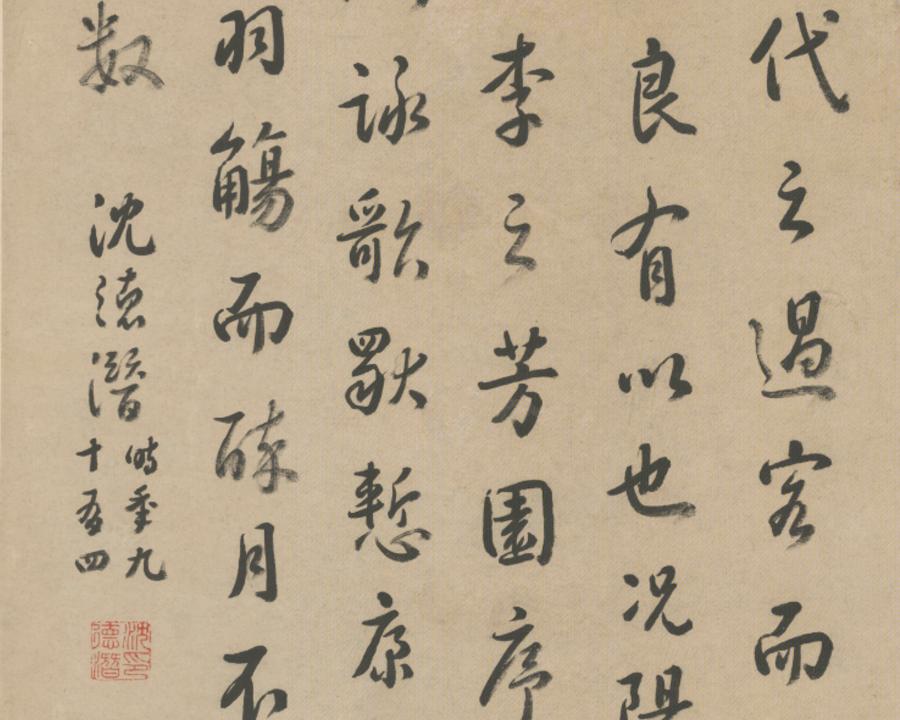 代之過客而
良有以也況陽
李之芳園序
詠歌獨慙康
羽觴而醉月不
数
沈德潛
時年九
十有四
沈印
德潛